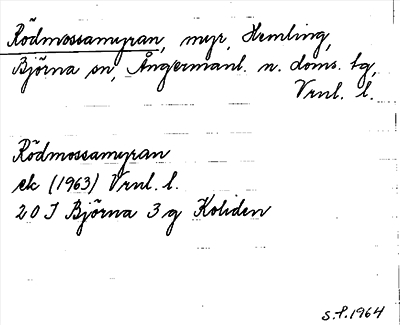 Rödmossamyran, myr, Hemling,
Björna sn, Ångermanl. n. doms. tg,
Vrnl. l.
Rödmossamyran
ek (1963) Vrnl. l.
20 J Björna 3 g Koliden
S.P. 1964